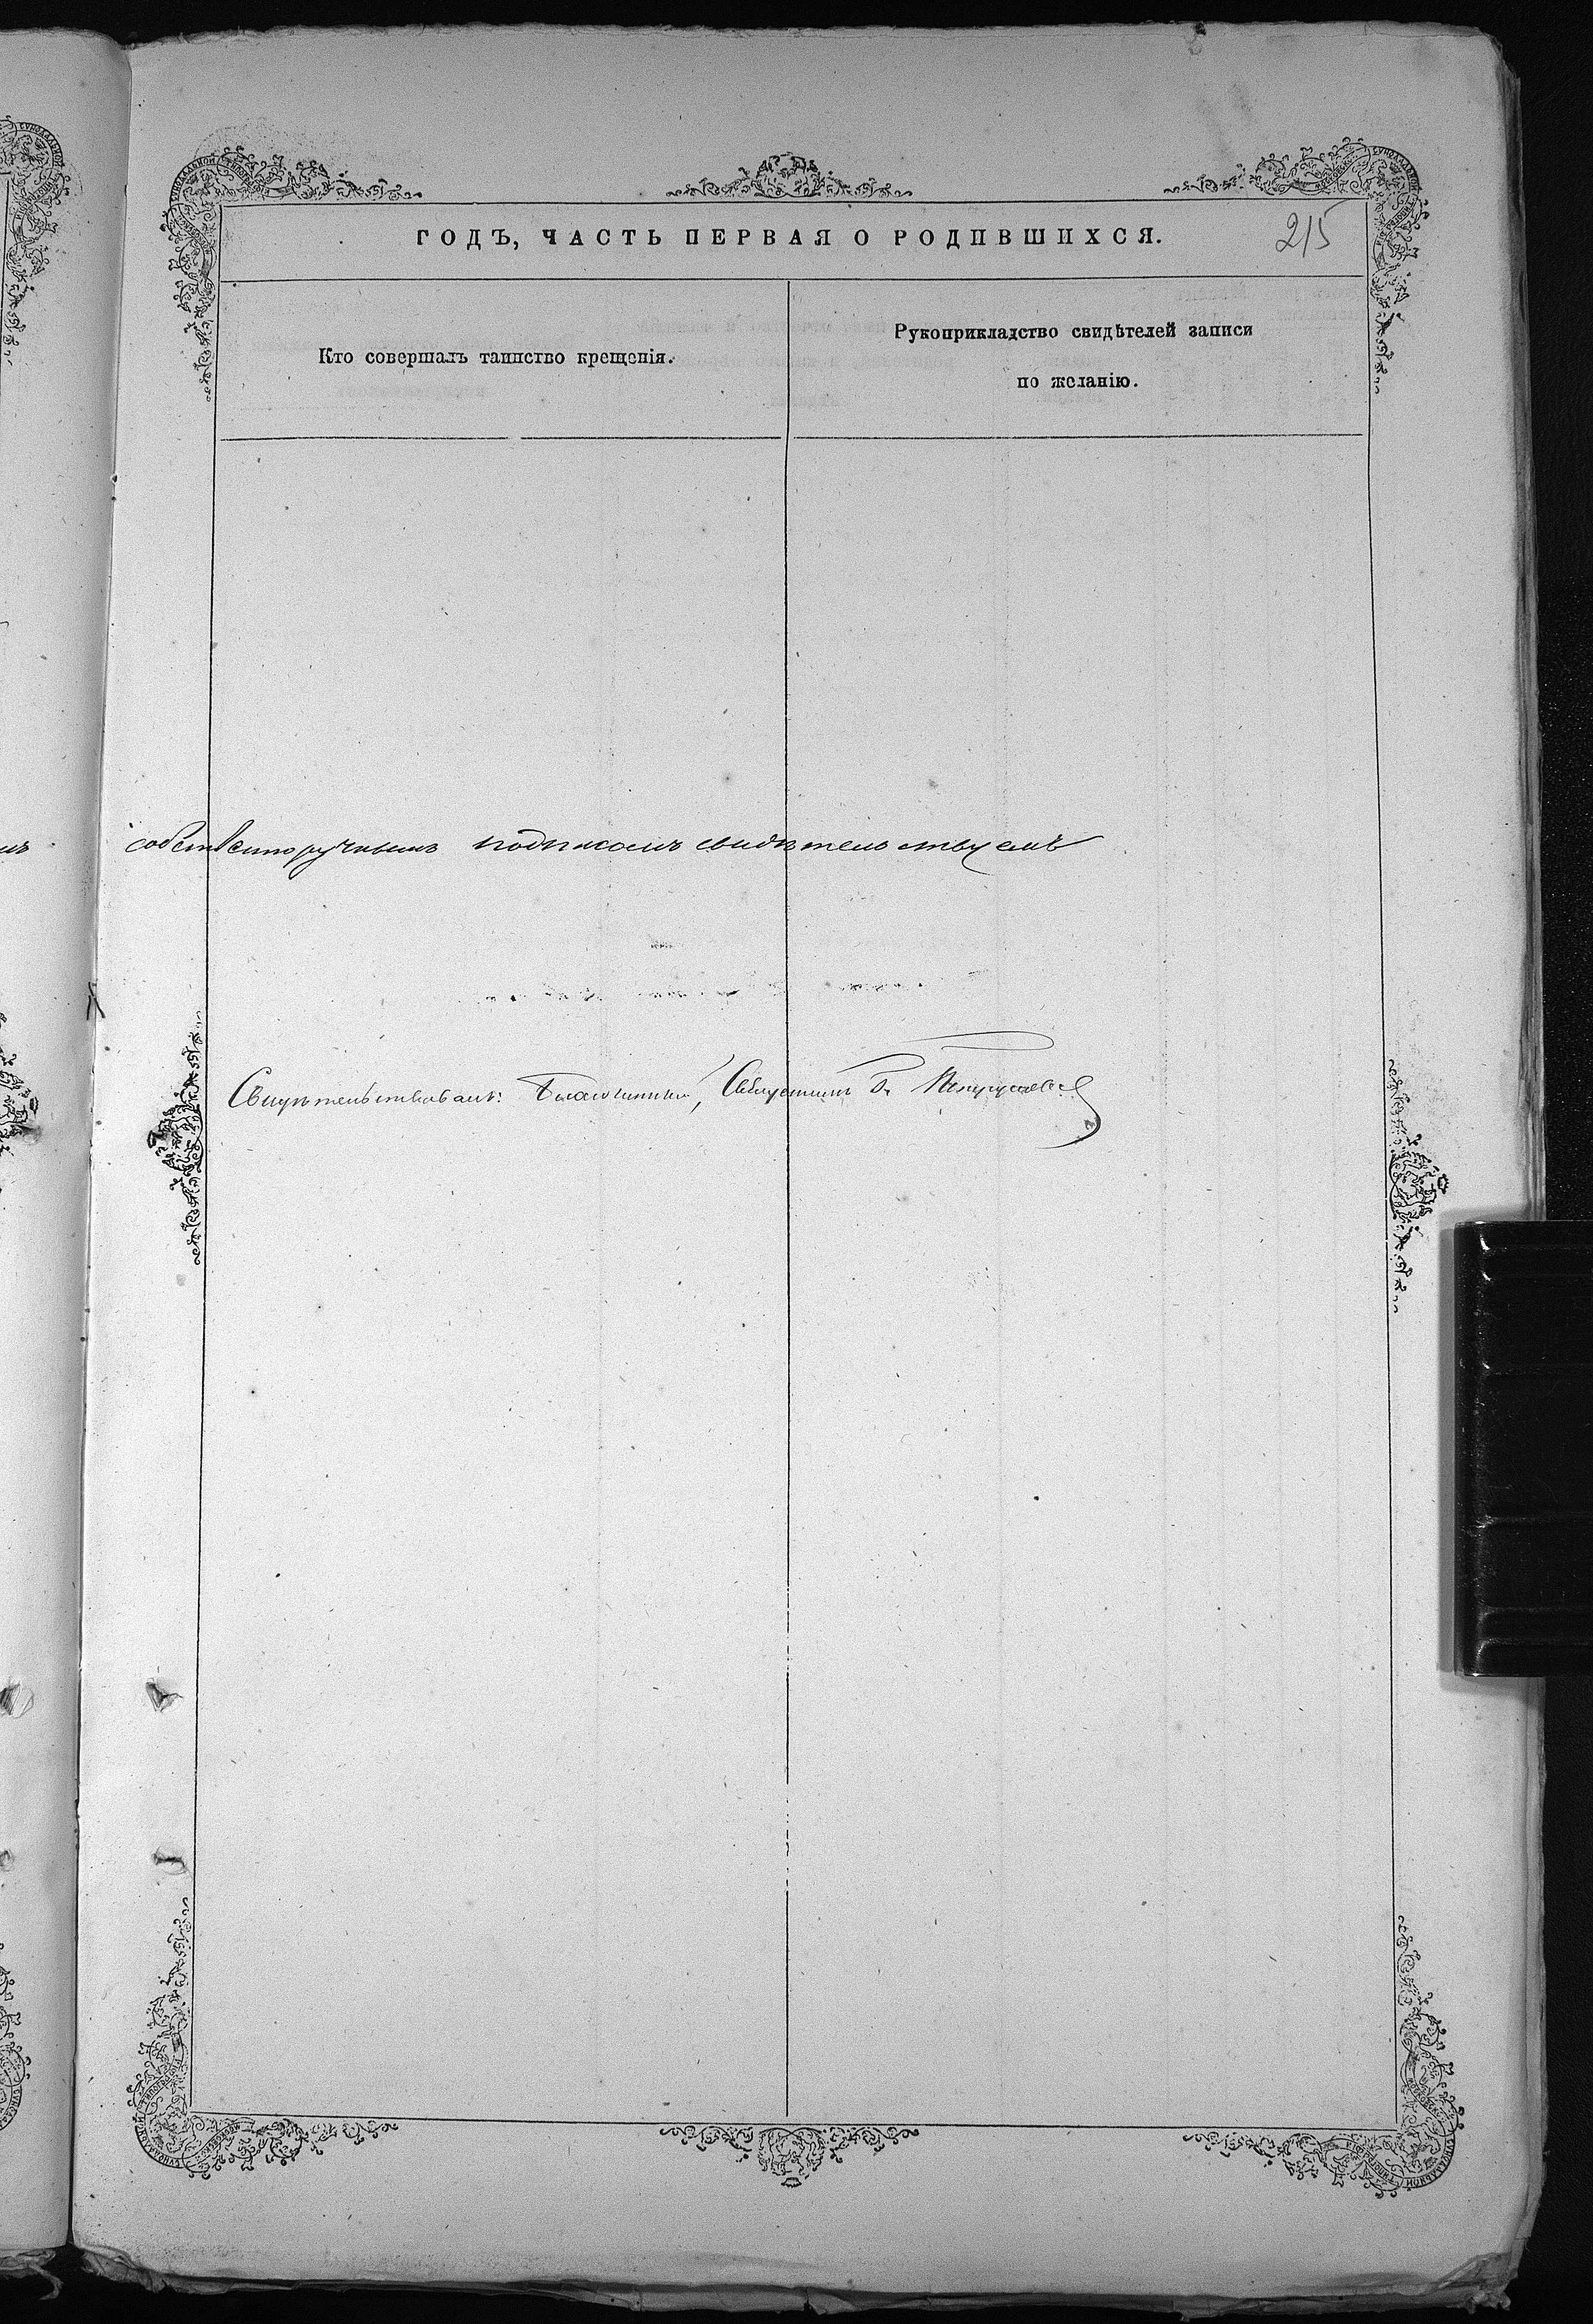 ГОДЪ, ЧАСТЬ ПЕРВАЯ О РОДИВШИХСЯ. 215
Кто совершалъ таинство крещенія.
Рукоприкладство свидѣтелей записи
по желанію.
собственноручнымъ подписомъ свидѣтельствуемъ
Свидѣтельствовалъ: Благочинный, Священникъ